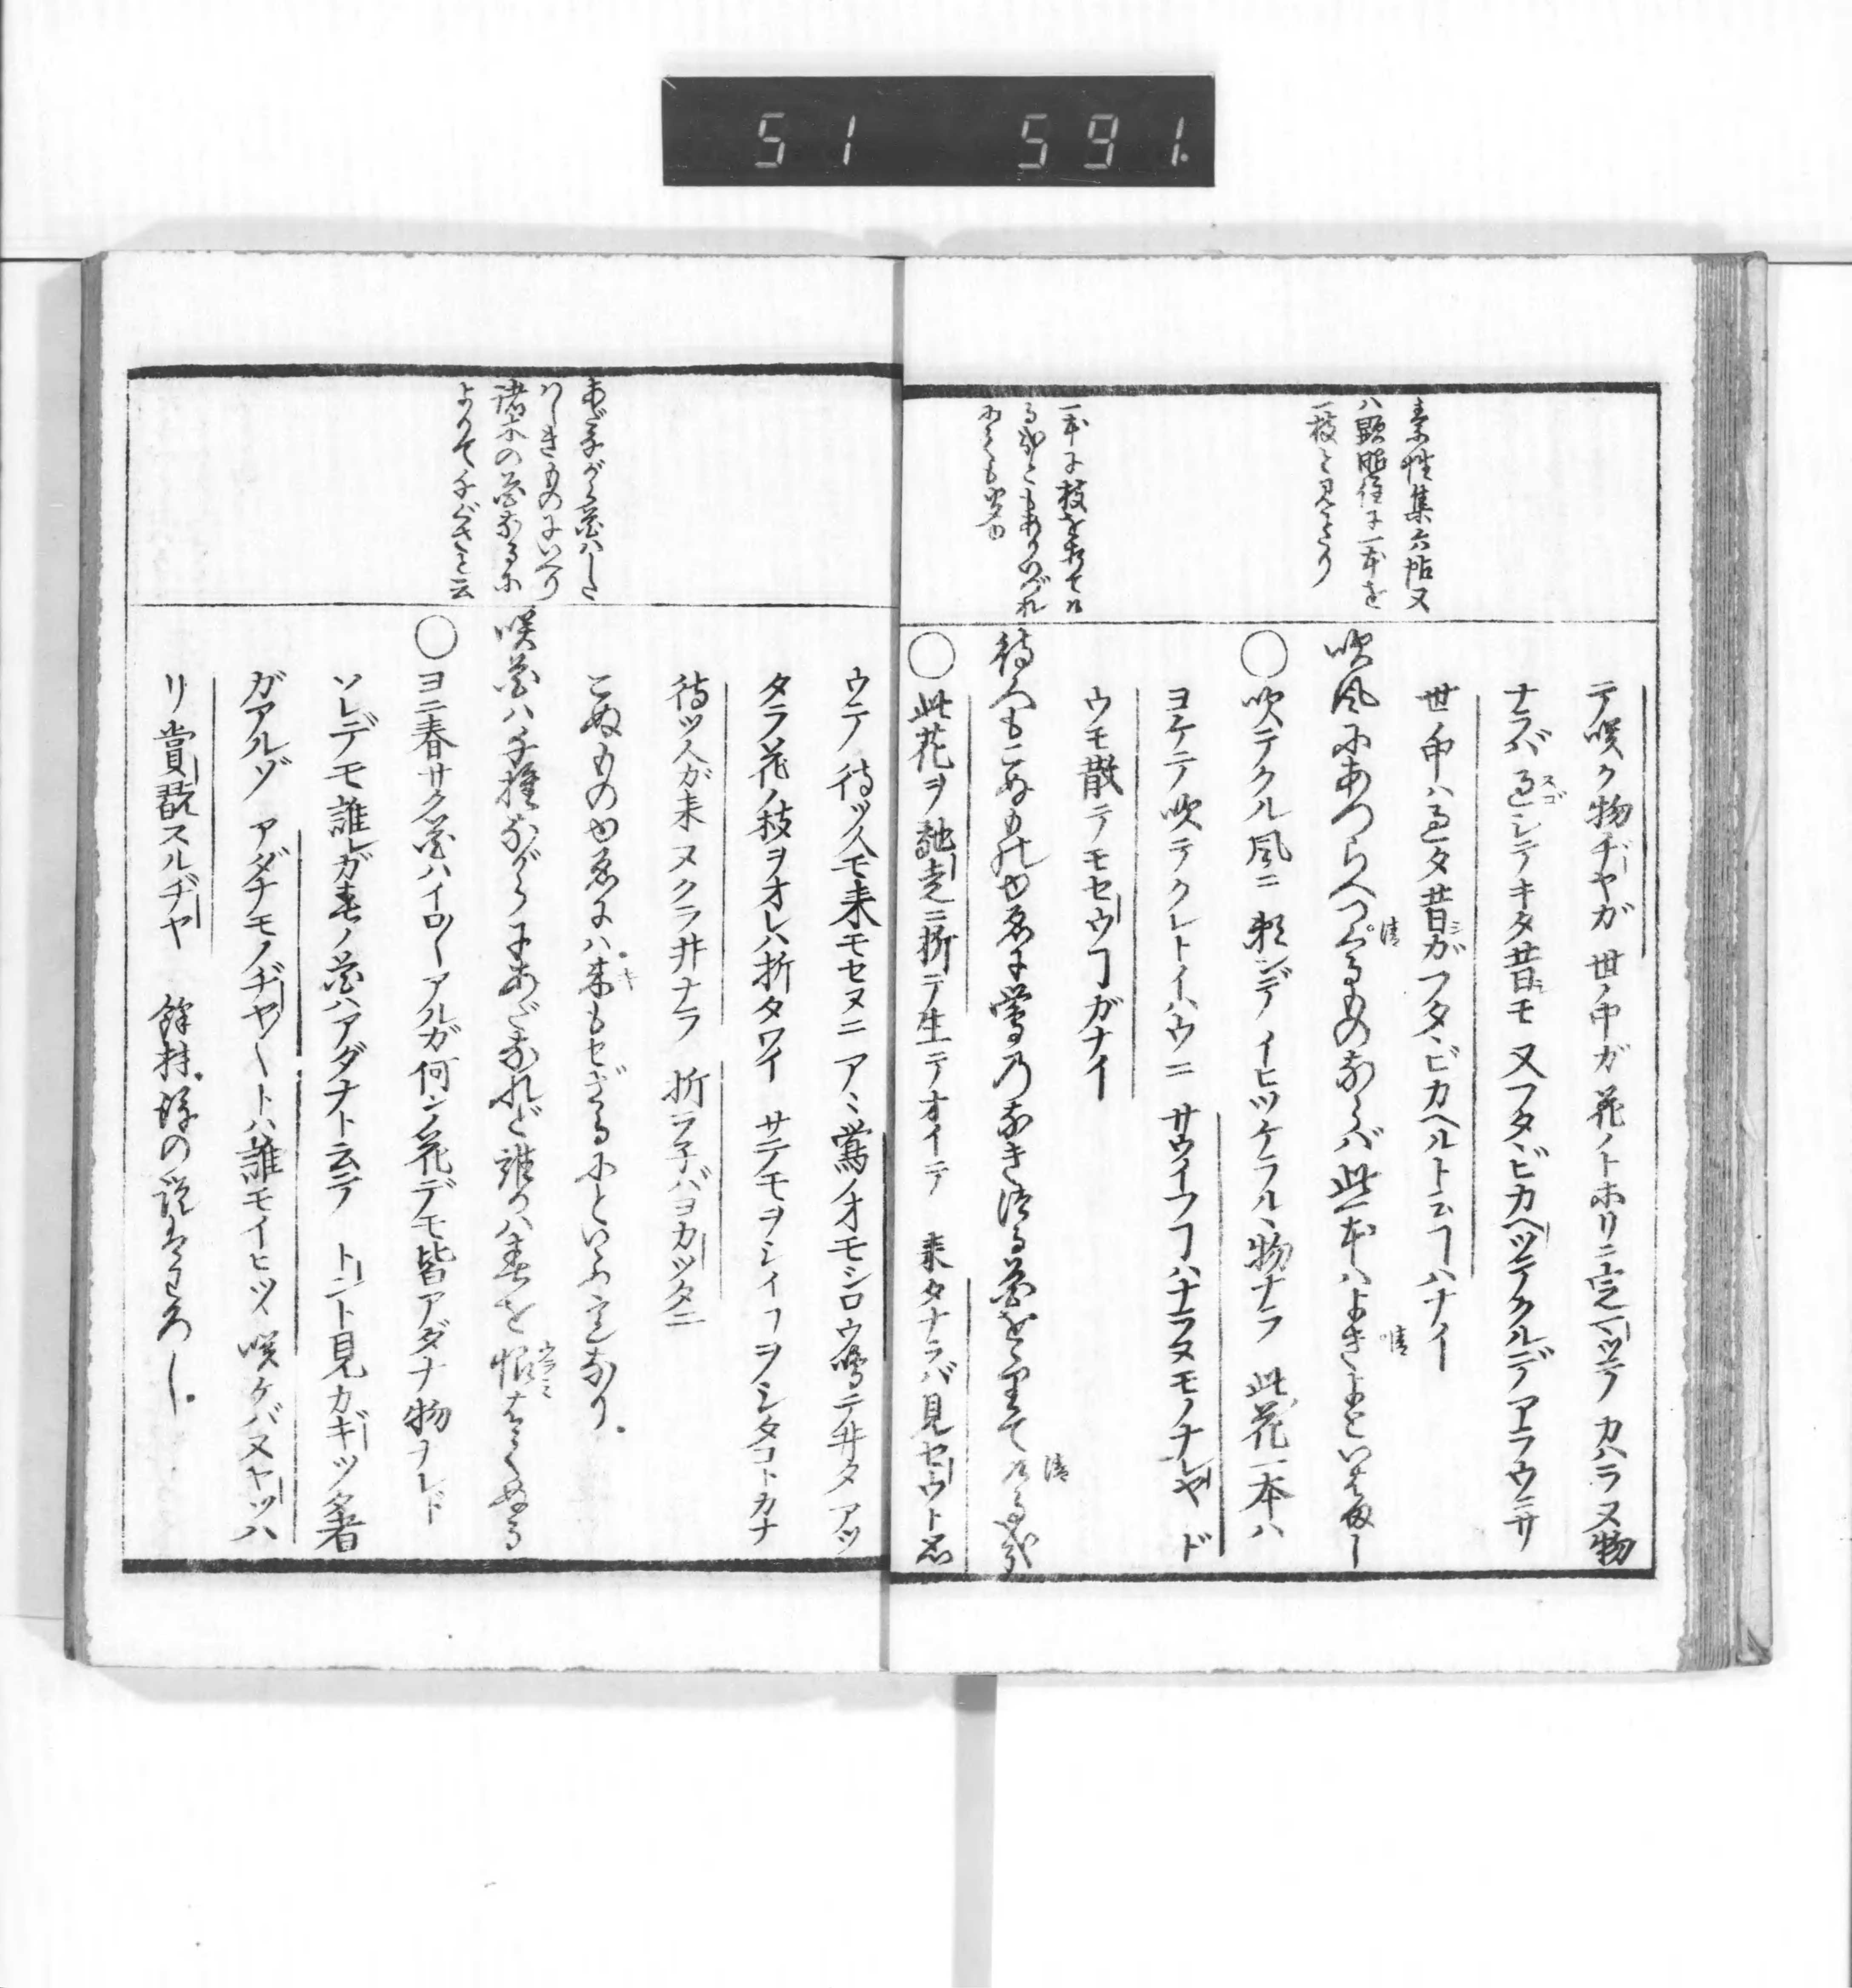 51 591.
素性集六帖又
ハ顕昭注に一本を
一枝と見えたり
一本に枝を折ては
テ咲ク物ヂヤガ 世ノ中ガ 花ノトホリニ定マツテ カハラヌ物
ナラバ 過シテキタ昔モ 又フタヽビカヘツテクルデアラウニサ
スゴ
世ノ中ハ過タ昔ガフタヽビカヘルト云ヿハナイ
吹風にあつらへつくるものならば此一本はよきよといはまし
○吹テクル風ニ 頼ンデ イヒツケラルヽ物ナラ 此花一本ハ
ヨケテ吹テクレトイハウニ サウイフヿハナラヌモノナレヤ ド
ウモ散テモセウヿガナイ
待人もこぬものゆゑに鶯のなきつる花を折てける哉
○此花ヲ馳走ニ折テ生テオイテ 来タナラバ見セウト思
あだながら花はした
はしきものにいへり
諸木の花なるに
よりて千ぐさと云
ウテ 待ツ人モ来モセヌニ アヽ鶯ノオモシロウ鳴ニ井タアツ
タラ花ノ枝ヲオレハ折タワイ サテモヲシイヿヲシタコトカナ
待ツ人が来ヌクラ井ナラ 折ラ子バヨカツタニ
こぬものゆゑには。来もせざるにといふ意なり。
咲花ハ千種ながらにあだなれど誰かは春を恨はてたる
ウラミ
○ヨニ春サク花ハイロ〳〵アルガ何ンノ花デモ皆アダナ物ナレド
ソレデモ誰レガ春ノ花ハアダナト云テ トント見カギツタ者
ガアルゾ アダナモノヂヤ〳〵トハ誰モイヒツヽ 咲ケバヌヤツハ
リ賞翫スルヂヤ 餘材。